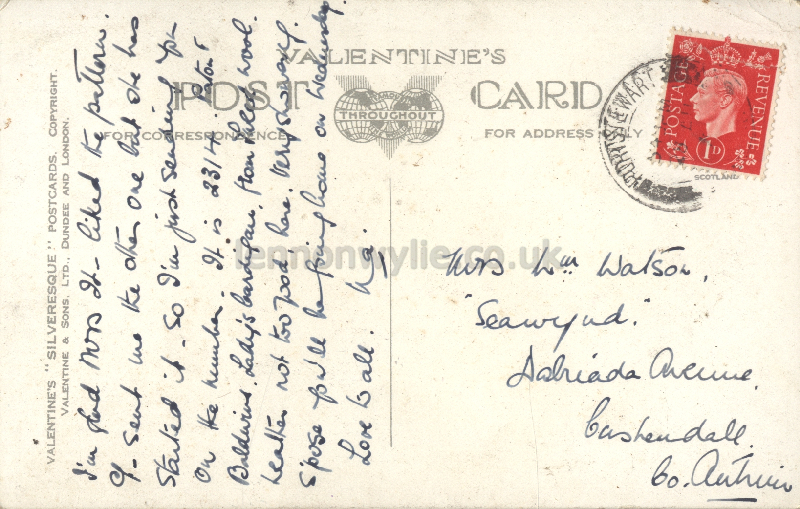 VALENTINE'S
POST CARD
FOR CORRESPONDENCE
FOR ADDRESS ONLY
THROUGHOUT
VALENTINE'S "SILVERESQUE" POSTCARDS. COPYRIGHT.
VALENTINE & SONS. LTD., DUNDEE AND LONDON.
SCOTLAND
POSTAGE
REVENUE
1D
PORTSTEWART
I'm glad Mrs It- liked the pattern.
sent me the other one but she has
started it - so I'm just sending you
on the number. It is 2314. Patons &
Baldwins. Lady's cardigan, from
wool.
Weather not too good, here. Very showery.
S'pose you'll be going home on Wednesday.
Love to all.
lennonwylie.co.uk
Mrs Wm Watson,
"Seawynd."
Dalriada Avenue,
Cushendall.
Co. Antrim